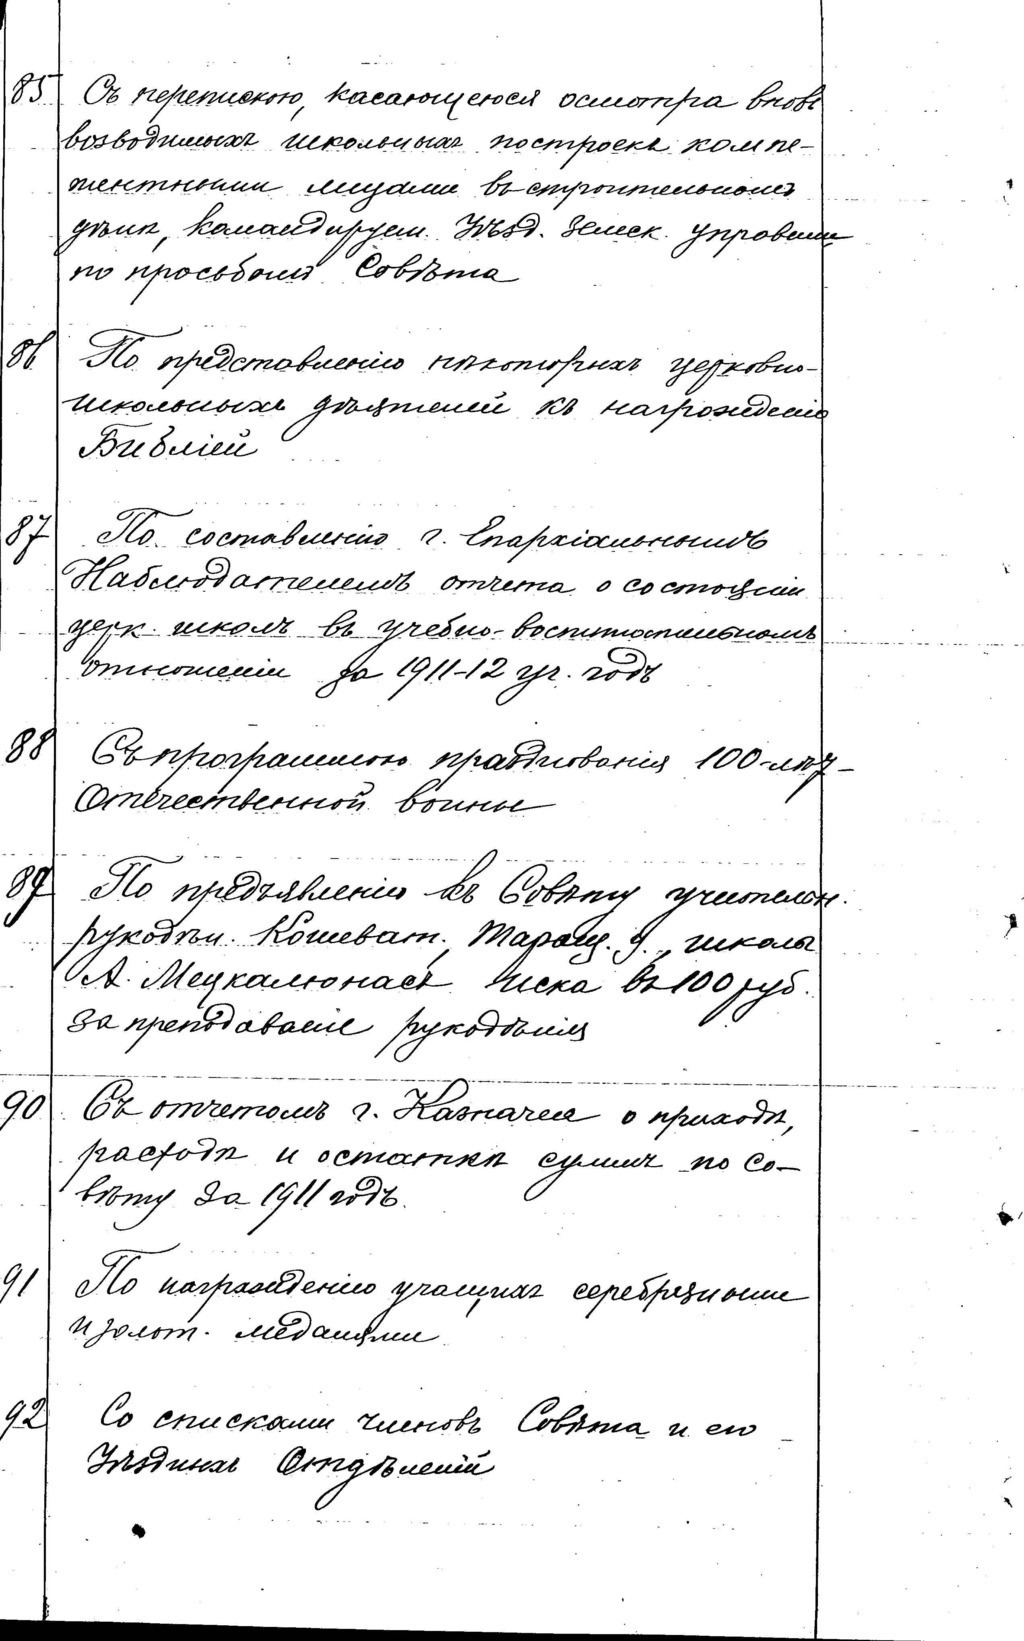 85 Съ перепискою, касающеюся осмотра вновь
возводимыхъ школьныхъ построекъ компе-
тентными лицами въ строительномъ
дѣлѣ, командируем. Уѣзд. Земск. управами
по просьбамъ Совѣта
86 По представленію нѣкоторыхъ церковно-
школьныхъ дѣятелей къ награжденію
Библіей
87 По составленію г. Епархіальнымъ
Наблюдателемъ отчета о состояніи
церк. школъ въ учебно-воспитательномъ
отношеніи за 1911-12 уч. годъ
88 Съ программою празднованія 100-лѣт-
Отечественной войны
89 По предъявленію къ Совѣту учительн.
рукодѣл. Кошеват., Таращ. у., школы
А. Мецкалюнасъ иска въ 100 руб.
за преподаваніе рукодѣлія
90 Съ отчетомъ г. Казначея о приходѣ,
расходѣ и остаткѣ суммъ по Со-
вѣту за 1911 годъ.
91 По награжденію учащихъ серебряными
и золот. медалями
92 Со списками членовъ Совѣта и его
Уѣздныхъ Отдѣленій